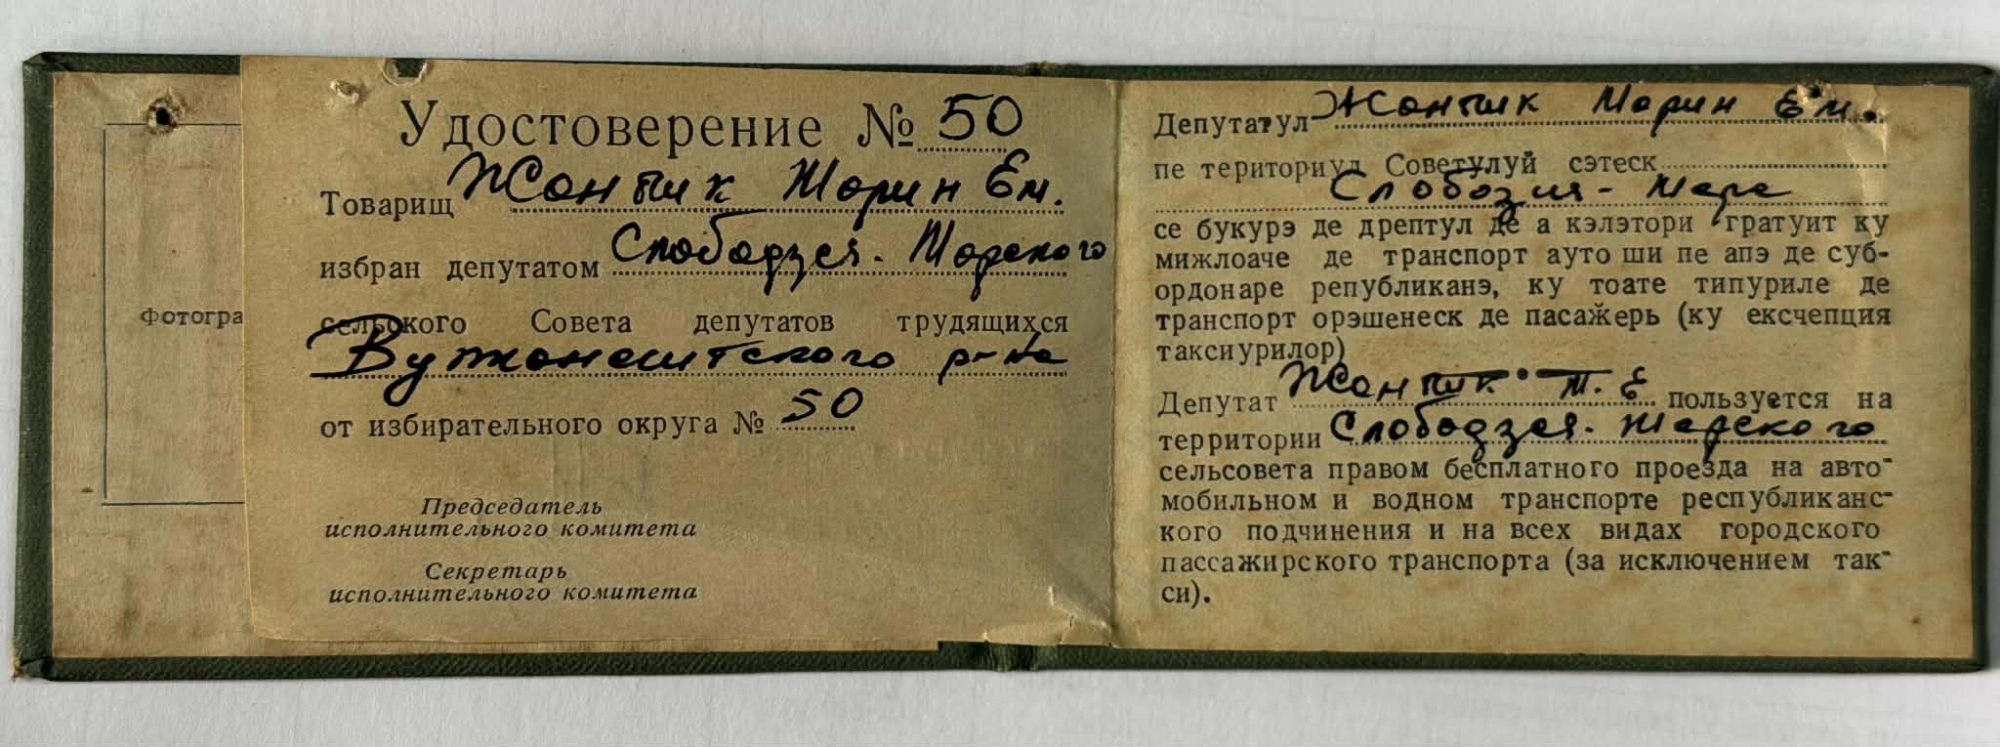 Фотогра
Удостоверение № 50
Товарищ Жантик Марин Ем.
избран депутатом Слободзея-Марского
сельского Совета депутатов трудящихся
Вулканештского р-на
от избирательного округа № 50
Председатель
исполнительного комитета
Секретарь
исполнительного комитета
Депутатул Жантик Марин Ем.
пе териториул Советулуй сэтеск
Слобозия-Маре
се букурэ де дрептул де а кэлэтори гратуит ку
мижлоаче де транспорт ауто ши пе апэ де суб-
ордонаре републиканэ, ку тоате типуриле де
транспорт орэшенеск де пасажерь (ку ексчепция
таксиурилор)
Депутат Жантик М. Е. пользуется на
территории Слободзея-Марского
сельсовета правом бесплатного проезда на авто-
мобильном и водном транспорте республиканс-
кого подчинения и на всех видах городского
пассажирского транспорта (за исключением так-
си).